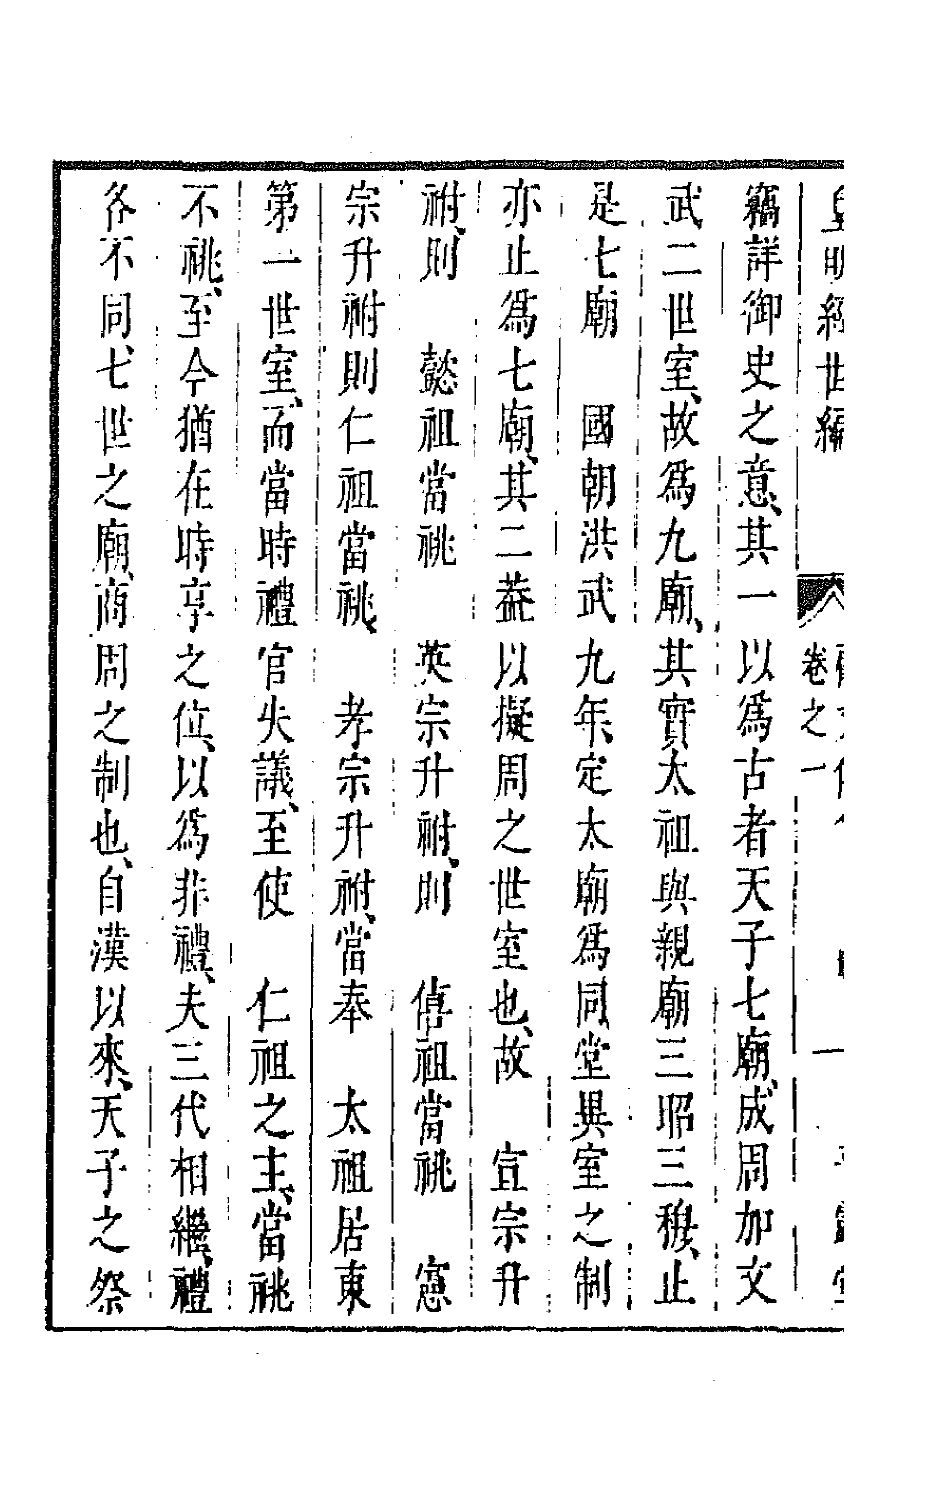 皇明經世編
卷之一
竊詳御史之意、其一以爲古者天子七廟、成周加文
武二世室、故爲九廟、其實太祖與親廟三昭三穆、止
是七廟　國朝洪武九年、定太廟爲同堂異室之制
亦止爲七廟、其二葢以擬周之世室也、故　宣宗升
祔、則　懿祖當祧　英宗升祔、則　僖祖當祧　憲
宗升祔則仁祖當祧、　孝宗升祔、當奉　太祖居東
第一世室、而當時禮官失議、至使　仁祖之主、當祧
不祧、至今猶在時享之位、以爲非禮、夫三代相繼、禮
各不同、七世之廟、商周之制也、自漢以來、天子之祭